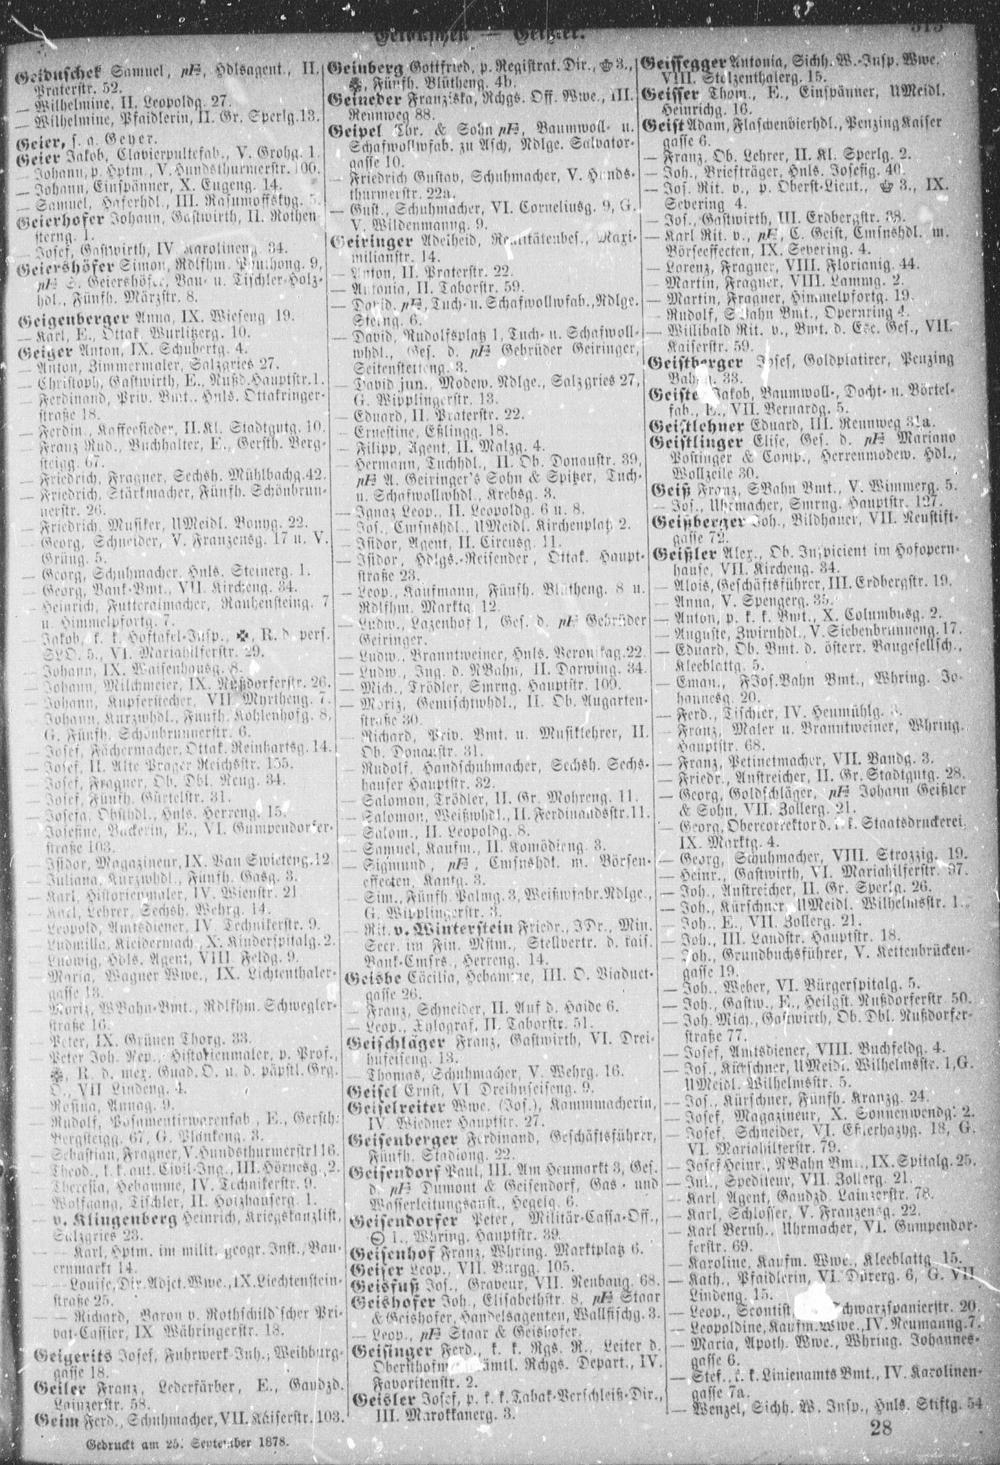 Geiduschek — Geißler.
313
Geiduschek Samuel, Hdlsagent., II.
Praterstr. 52.
— Wilhelmine, II. Leopoldg. 27.
— Wilhelmine, Pfaidlerin, II. Gr. Sperlg. 13.
Geier, s. a. Geyer.
Geier Jakob, Clavierpultefab., V. Grohg. 1.
— Johann, p. Hptm., V. Hundsthurmerstr. 106.
— Johann, Einspänner, X. Eugeng. 14.
— Samuel, Haferhdl., III. Rasumoffskyg. 5.
Geierhofer Johann, Gastwirth, II. Rothen
sterng. 1.
— Josef, Gastwirth, IV Karolineng. 34.
Geiershöfer Simon, Rdlfhm. 9,
S. Geiershöfer, Bau- u. Tischler-Holz-
hdl., Fünfh. Märzstr. 8.
Geigenberger Anna, IX. Wieseng 19.
— Karl, E., Ottak. Wurlitzerg. 10.
Geiger Anton, IX. Schubertg. 4.
— Anton, Zimmermaler, Salzgries 27.
— Christoph, Gastwirth, E., Nußd. Hauptstr. 1.
— Ferdinand, Priv. Bmt., Hnls. Ottakringer-
straße 18.
— Ferdin., Kaffeesieder, II. Kl. Stadtgutg. 10.
— Franz Rud., Buchhalter, E., Gersth. Berg-
steigg. 67.
— Friedrich, Fragner, Sechsh. Mühlbachg. 42.
— Friedrich, Stärkmacher, Fünfh. Schönbrun-
nerstr. 26.
— Friedrich, Musiker, UMeidl. Bonyg. 22.
— Georg, Schneider, V. Franzensg. 17 u. V.
Grüng. 5.
— Georg, Schuhmacher, Hnls. Steinerg. 1.
— Georg, Bank-Bmt., VII. Kircheng. 34.
— Heinrich, Futteralmacher, Rauhensteing. 7
u. Himmelpfortg. 7.
— Jakob, k. k. Hoftafel-Insp., R. d. pers.
SLO. 5., VI. Mariahilferstr. 29.
— Johann, IX. Waisenhausg. 8.
— Johann, Milchmeier, IX. Nußdorferstr. 26.
— Johann, Kupferstecher, VII. Myrtheng. 7.
— Johann, Kurzwhdl., Fünfh. Kohlenhofg. 8,
G. Fünfh. Schönbrunnerstr. 6.
— Josef, Fächermacher, Ottak. Reinhartsg. 14.
— Josef, II. Alte Prager Reichsstr. 155.
— Josef, Fragner, Ob. Dbl. Neug. 34.
— Josef, Fünfh. Gürtelstr. 31.
— Josefa, Obsthdl., Hnls. Herreng. 15.
— Josefine, Bäckerin, E., VI. Gumpendorfer-
straße 103.
— Isidor, Magazineur, IX. Van Swieteng. 12.
— Juliana, Kurzwhdl., Fünfh. Gasg. 3.
— Karl, Historienmaler, IV. Wienstr. 21
— Karl, Lehrer, Sechsh. Wehrg. 14.
— Leopold, Amtsdiener, IV. Technikerstr. 9.
— Ludmilla, Kleidermach., X. Kinderspitalg. 2.
— Ludwig, Hdls. Agent, VIII. Feldg. 9.
— Maria, Wagner Wwe., IX. Lichtenthaler-
gasse 18.
— Moriz, WBahn-Bmt., Rdlfhm. Schwegler-
straße 16.
— Peter, IX. Grünen Thorg. 33.
— Peter Joh. Nep., Historienmaler, p. Prof.,
R. d. mex. Guad. O. u. d. päpstl. Grg.
O., VII. Lindeng. 4.
— Rosina, Annag. 9.
— Rudolf, Posamentirwarenfab., E., Gersth.
Bergsteigg. 67, G. Plankeng. 3.
— Sebastian, Fragner, V. Hundsthurmerstr 116.
— Theod., k. k. aut. Civil-Ing., III. Hörnesg. 2.
— Theresia, Hebamme, IV. Technikerstr. 9.
— Wolfgang, Tischler, II. Holzhauserg. 1.
— v. Klingenberg Heinrich, Kriegskanzlist,
Salzgries 23.
— — Karl, Hptm. im milit. geogr. Inst., Bau-
ernmarkt 14.
— — Louise, Dir. Adjct. Wwe., IX. Liechtenstein-
straße 25.
— — Richard, Baron v. Rothschild'scher Pri-
vat-Cassier, IX Währingerstr. 18.
Geigerits Josef, Fuhrwerk-Inh., Weihburg-
gasse 18.
Geiler Franz, Lederfärber, E., Gaudzd.
Lainzerstr. 58.
Geim Ferd., Schuhmacher, VII. Kaiserstr. 103.
Gedruckt am 25. September 1878.
Geinberg Gottfried, p. Registrat. Dir., 3.,
Fünfh. Blütheng. 4b.
Geineder Franziska, Rchgs. Off. Wwe., III.
Rennweg 88.
Geipel Chr. & Sohn, Baumwoll- u.
Schafwollwfab. zu Asch, Ndlge. Salvator-
gasse 10.
— Friedrich Gustav, Schuhmacher, V. Hunds-
thurmerstr. 22a.
— Gust., Schuhmacher, VI. Corneliusg. 9, G.
V. Wildenmanng. 9.
Geiringer Adelheid, Realitätenbes., Maxi-
milianstr. 14.
— Anton, II. Praterstr. 22.
— Antonia, II. Taborstr. 59.
— David, Tuch- u. Schafwollwfab., Ndlge.
Sterng. 6.
— David, Rudolfsplatz 1, Tuch- u. Schafwoll-
whdl., Ges. d. Gebrüder Geiringer,
Seitenstetteng. 3.
— David jun., Modew. Ndlge., Salzgries 27,
G. Wipplingerstr. 13.
— Eduard, II. Praterstr. 22.
— Ernestine, Eßlingg. 18.
— Filipp, Agent, II. Malzg. 4.
— Hermann, Tuchhdl., II. Ob. Donaustr. 39,
A. Geiringer's Sohn & Spitzer, Tuch-
u. Schafwollwhdl., Krebsg. 3.
— Ignaz Leop., II. Leopoldg. 6 u. 8.
— Jos., Cmsnshdl., UMeidl. Kirchenplatz 2.
— Isidor, Agent, II. Circusg. 11.
— Isidor, Hdlgs.-Reisender, Ottak. Haupt-
straße 23.
— Leop., Kaufmann, Fünfh. Blütheng. 8 u.
Rdlfhm. Marktg. 12.
— Ludw., Lazenhof 1, Ges. d. Gebrüder
Geiringer.
— Ludw., Branntweiner, Hnls. Veronikag. 22.
— Ludw., Ing. d. NBahn, II. Darwing. 34.
— Mich., Trödler, Smrng. Hauptstr. 109.
— Moriz, Gemischtwhdl., II. Ob. Augarten-
straße 30.
— Richard, Priv. Bmt. u. Musiklehrer, II.
Ob. Donaustr. 31.
— Rudolf, Handschuhmacher, Sechsh. Sechs-
hauser Hauptstr. 32.
— Salomon, Trödler, II. Gr. Mohreng. 11.
— Salomon, Weißwhdl., II. Ferdinandsstr. 11.
— Salom., II. Leopoldg. 8.
— Samuel, Kaufm., II. Komödieng. 3.
— Sigmund, Cmsnshdl. m. Börsen-
effecten, Kantg. 3.
— Sim., Fünfh. Palmg. 3, Weißwfabr. Ndlge.,
G. Wipplingerstr. 3.
— Rit. v. Winterstein Friedr., JDr., Min.
Secr. im Fin. Mstm., Stellvertr. d. kais.
Bank-Cmsrs., Herreng. 14.
Geisbe Cäcilia, Hebamme, III. O. Viaduct-
gasse 26.
— Franz, Schneider, II. Auf d. Haide 6.
— Leop., Xylograf, II. Taborstr. 51.
Geischläger Franz, Gastwirth, VI. Drei-
hufeiseng. 13.
— Thomas, Schuhmacher, V. Wehrg. 16.
Geisel Ernst, VI. Dreihufeiseng. 9.
Geiselreiter Wwe. (Jos.), Kammmacherin,
IV. Wiedner Hauptstr. 27.
Geisenberger Ferdinand, Geschäftsführer,
Fünfh. Stadiong. 22.
Geisendorf Paul, III. Am Heumarkt 3, Ges.
d. Dumont & Geisendorf, Gas- und
Wasserleitungsanst., Hegelg. 6.
Geisendorfer Peter, Militär-Cassa-Off.,
1., Whring. Hauptstr. 39.
Geisenhof Franz, Whring. Marktplatz 6.
Geiser Leop., VII. Burgg. 105.
Geisfuß Jos., Graveur, VII. Neubaug. 68.
Geishofer Joh., Elisabethstr. 8, Staar
& Geishofer, Handelsagenten, Wallfischg. 3.
— Leop., Staar & Geishofer.
Geisinger Ferd., k. k. Rgs. R., Leiter d.
Obersthofm ämtl. Rchgs. Depart., IV.
Favoritenstr. 2.
Geisler Josef, p. k. k. Tabak-Verschleiß-Dir.,
III. Marokkanerg. 3.
Geissegger Antonia, Sichh. W.-Insp. Wwe.
VIII. Stolzenthalerg. 15.
Geisser Thom., E., Einspänner, UMeidl.
Heinrichg. 16.
Geist Adam, Flaschenbierhdl., Penzing Kaiser
gasse 6.
— Franz, Ob. Lehrer, II. Kl. Sperlg. 2.
— Joh., Briefträger, Hnls. Josefig. 40.
— Jos. Rit. v., p. Oberst-Lieut., 3., IX.
Severing 4.
— Jos., Gastwirth, III. Erdbergstr. 38.
— Karl Rit. v., C. Geist, Cmsnshdl. m.
Börseeffecten, IX. Severing. 4.
— Lorenz, Fragner, VIII. Florianig. 44.
— Martin, Fragner, VIII. Lammg. 2.
— Martin, Fragner, Himmelpfortg. 19.
— Rudolf, SBahn Bmt., Opernring 4.
— Willibald Rit. v., Bmt. d. Esc. Ges., VII.
Kaiserstr. 59.
Geistberger Josef, Goldplatirer, Penzing
Bahng. 33.
Geiste Jakob, Baumwoll-, Docht- u. Börtel-
fab., E., VII. Bernardg. 5.
Geistlehner Eduard, III. Rennweg 31a.
Geistlinger Elise, Ges. d. Mariano
Postinger & Comp., Herrenmodew. Hdl.,
Wollzeile 30.
Geiß Franz, SBahn Bmt., V. Wimmerg. 5.
— Jos., Uhrmacher, Smrng. Hauptstr. 127.
Geißberger Joh., Bildhauer, VII. Neustift-
gasse 72.
Geißler Alex., Ob. Inspicient im Hofopern-
hause, VII. Kircheng. 34.
— Alois, Geschäftsführer, III. Erdbergstr. 19.
— Anna, V. Spengerg. 35.
— Anton, p. k. k. Bmt., X. Columbusg. 2.
— Auguste, Zwirnhdl., V. Siebenbrunneng. 17.
— Eduard, Ob. Bmt. d. österr. Baugesellsch.,
Kleeblattg. 5.
— Eman., FJos.Bahn Bmt., Whring. Jo-
hannesg. 20.
— Ferd., Tischler, IV. Heumühlg.
— Franz, Maler u. Branntweiner, Whring.
Hauptstr. 68.
— Franz, Petinetmacher, VII. Bandg. 3.
— Friedr., Anstreicher, II. Gr. Stadtgutg. 28.
— Georg, Goldschläger, Johann Geißler
& Sohn, VII. Zollerg. 21.
— Georg, Obercorrektor d. k. k. Staatsdruckerei,
IX. Marktg. 4.
— Georg, Schuhmacher, VIII. Strozzig. 19.
— Heinr., Gastwirth, VI. Mariahilferstr. 97.
— Joh., Anstreicher, II. Gr. Sperlg. 26.
— Joh., Kürschner, UMeidl. Wilhelmsstr. 1.
— Joh., E., VII. Zollerg. 21.
— Joh., III. Landstr. Hauptstr. 18.
— Joh., Grundbuchsführer, V. Kettenbrücken-
gasse 19.
— Joh., Weber, VI. Bürgerspitalg. 5.
— Joh., Gastw., E., Heilgst. Nußdorferstr. 50.
— Joh. Mich., Gastwirth, Ob. Dbl. Nußdorfer-
straße 77.
— Josef, Amtsdiener, VIII. Buchfeldg. 4.
— Jos., Kürschner, UMeidl. Wilhelmsstr. 1, G.
UMeidl. Wilhelmsstr. 5.
— Jos., Kürschner, Fünfh. Kranzg. 24.
— Josef, Magazineur, X. Sonnenwendg. 2.
— Josef, Schneider, VI. Esterhazyg. 18, G.
VI. Mariahilferstr. 79.
— Josef Heinr., NBahn Bmt., IX. Spitalg. 25.
— Jul., Spediteur, VII. Zollerg. 21.
— Karl, Agent, Gaudzd. Lainzerstr. 78.
— Karl, Schlosser, V. Franzensg. 22.
— Karl Bernh., Uhrmacher, VI. Gumpendor-
ferstr. 69.
— Karoline, Kaufm. Wwe., Kleeblattg. 15.
— Kath., Pfaidlerin, VI. Dürerg. 6, G. VII.
Lindeng. 15.
— Leop., Scontist, Schwarzspanierstr. 20.
— Leopoldine, Kaufm. Wwe., IV. Neumanng. 7.
— Maria, Apoth. Wwe., Whring. Johannes-
gasse 6.
— Stef., k. k. Linienamts Bmt., IV. Karolinen-
gasse 7a.
— Wenzel, Sichh. W. Insp., Hnls. Stiftg. 54
28